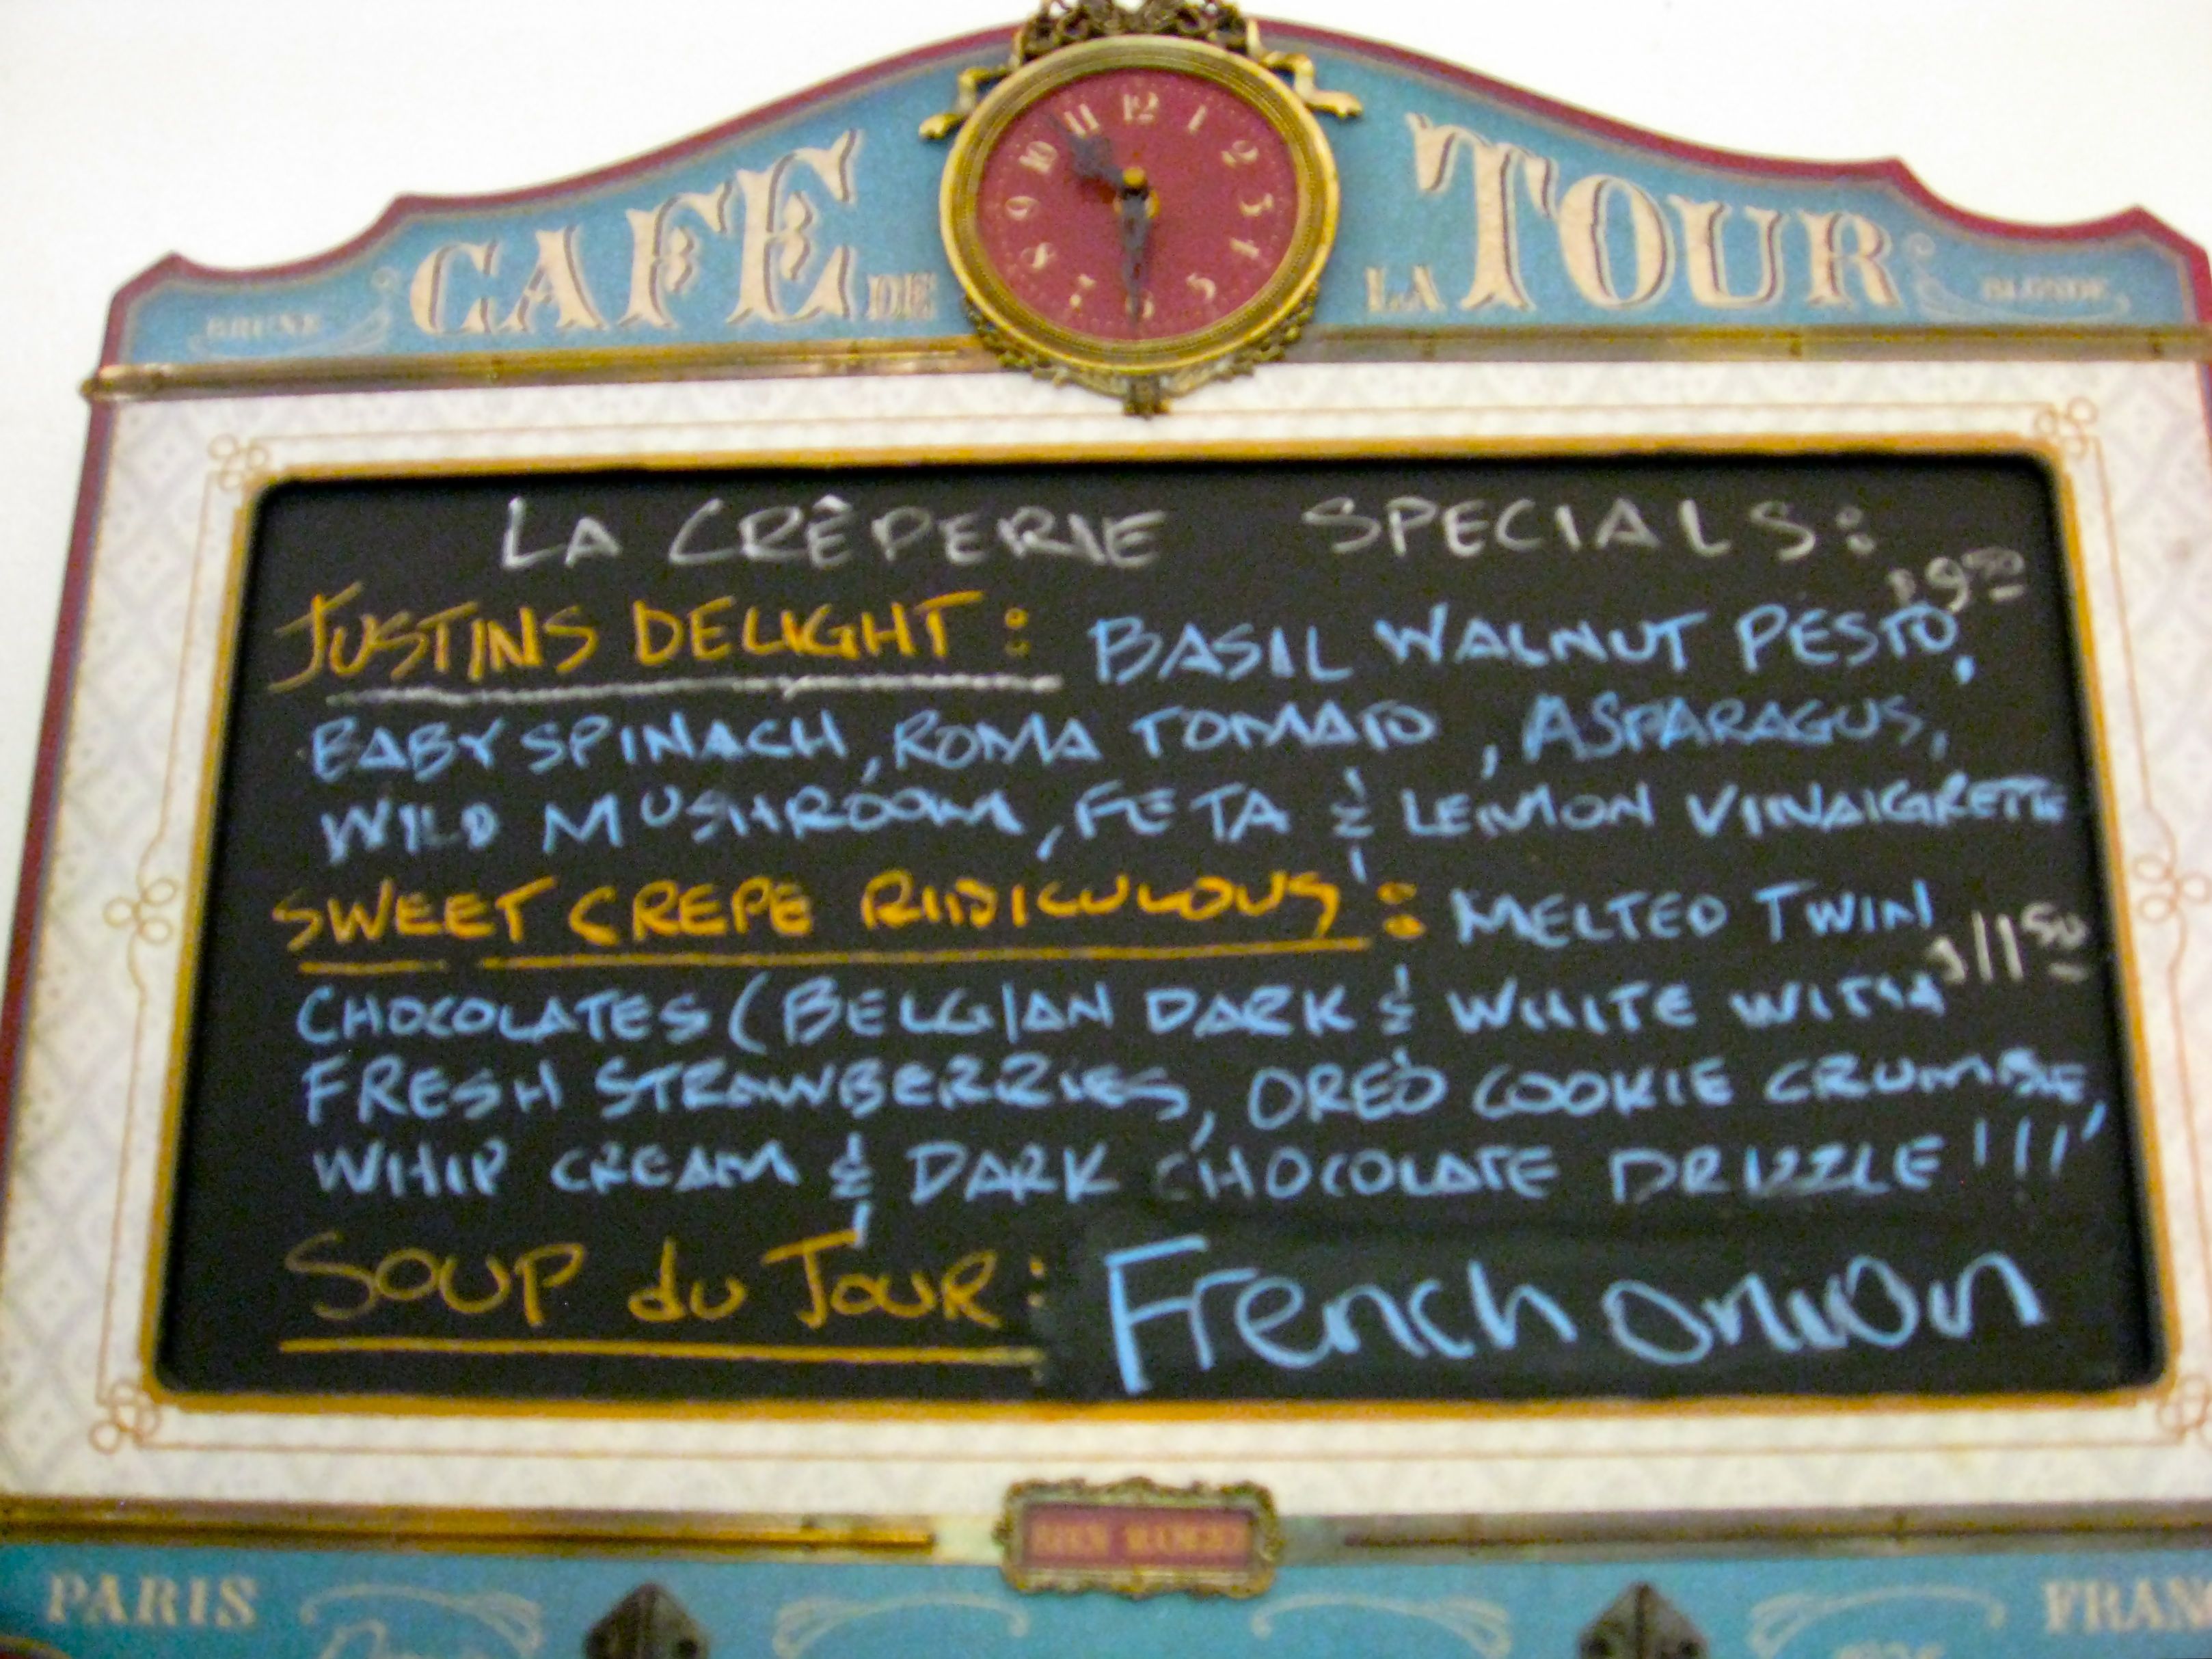 CAFE DE LA TOUR
BRUNE
BLONDE
12 1 2 3 4 5 6 7 8 9 10 11
LA CRÊPERIE SPECIALS:
$9.50
JUSTINS DELIGHT: BASIL WALNUT PESTO,
BABY SPINACH, ROMA TOMATO, ASPARAGUS,
WILD MUSHROOM, FETA & LEMON VINAIGRETTE
SWEET CREPE RIDICULOUS: MELTED TWIN
$11.50
CHOCOLATES (BELGIAN DARK & WHITE WITH
FRESH STRAWBERRIES, OREO COOKIE CRUMBLE,
WHIP CREAM & DARK CHOCOLATE DRIZZLE!!!!
SOUP du JOUR: French onion
PARIS
FRAN